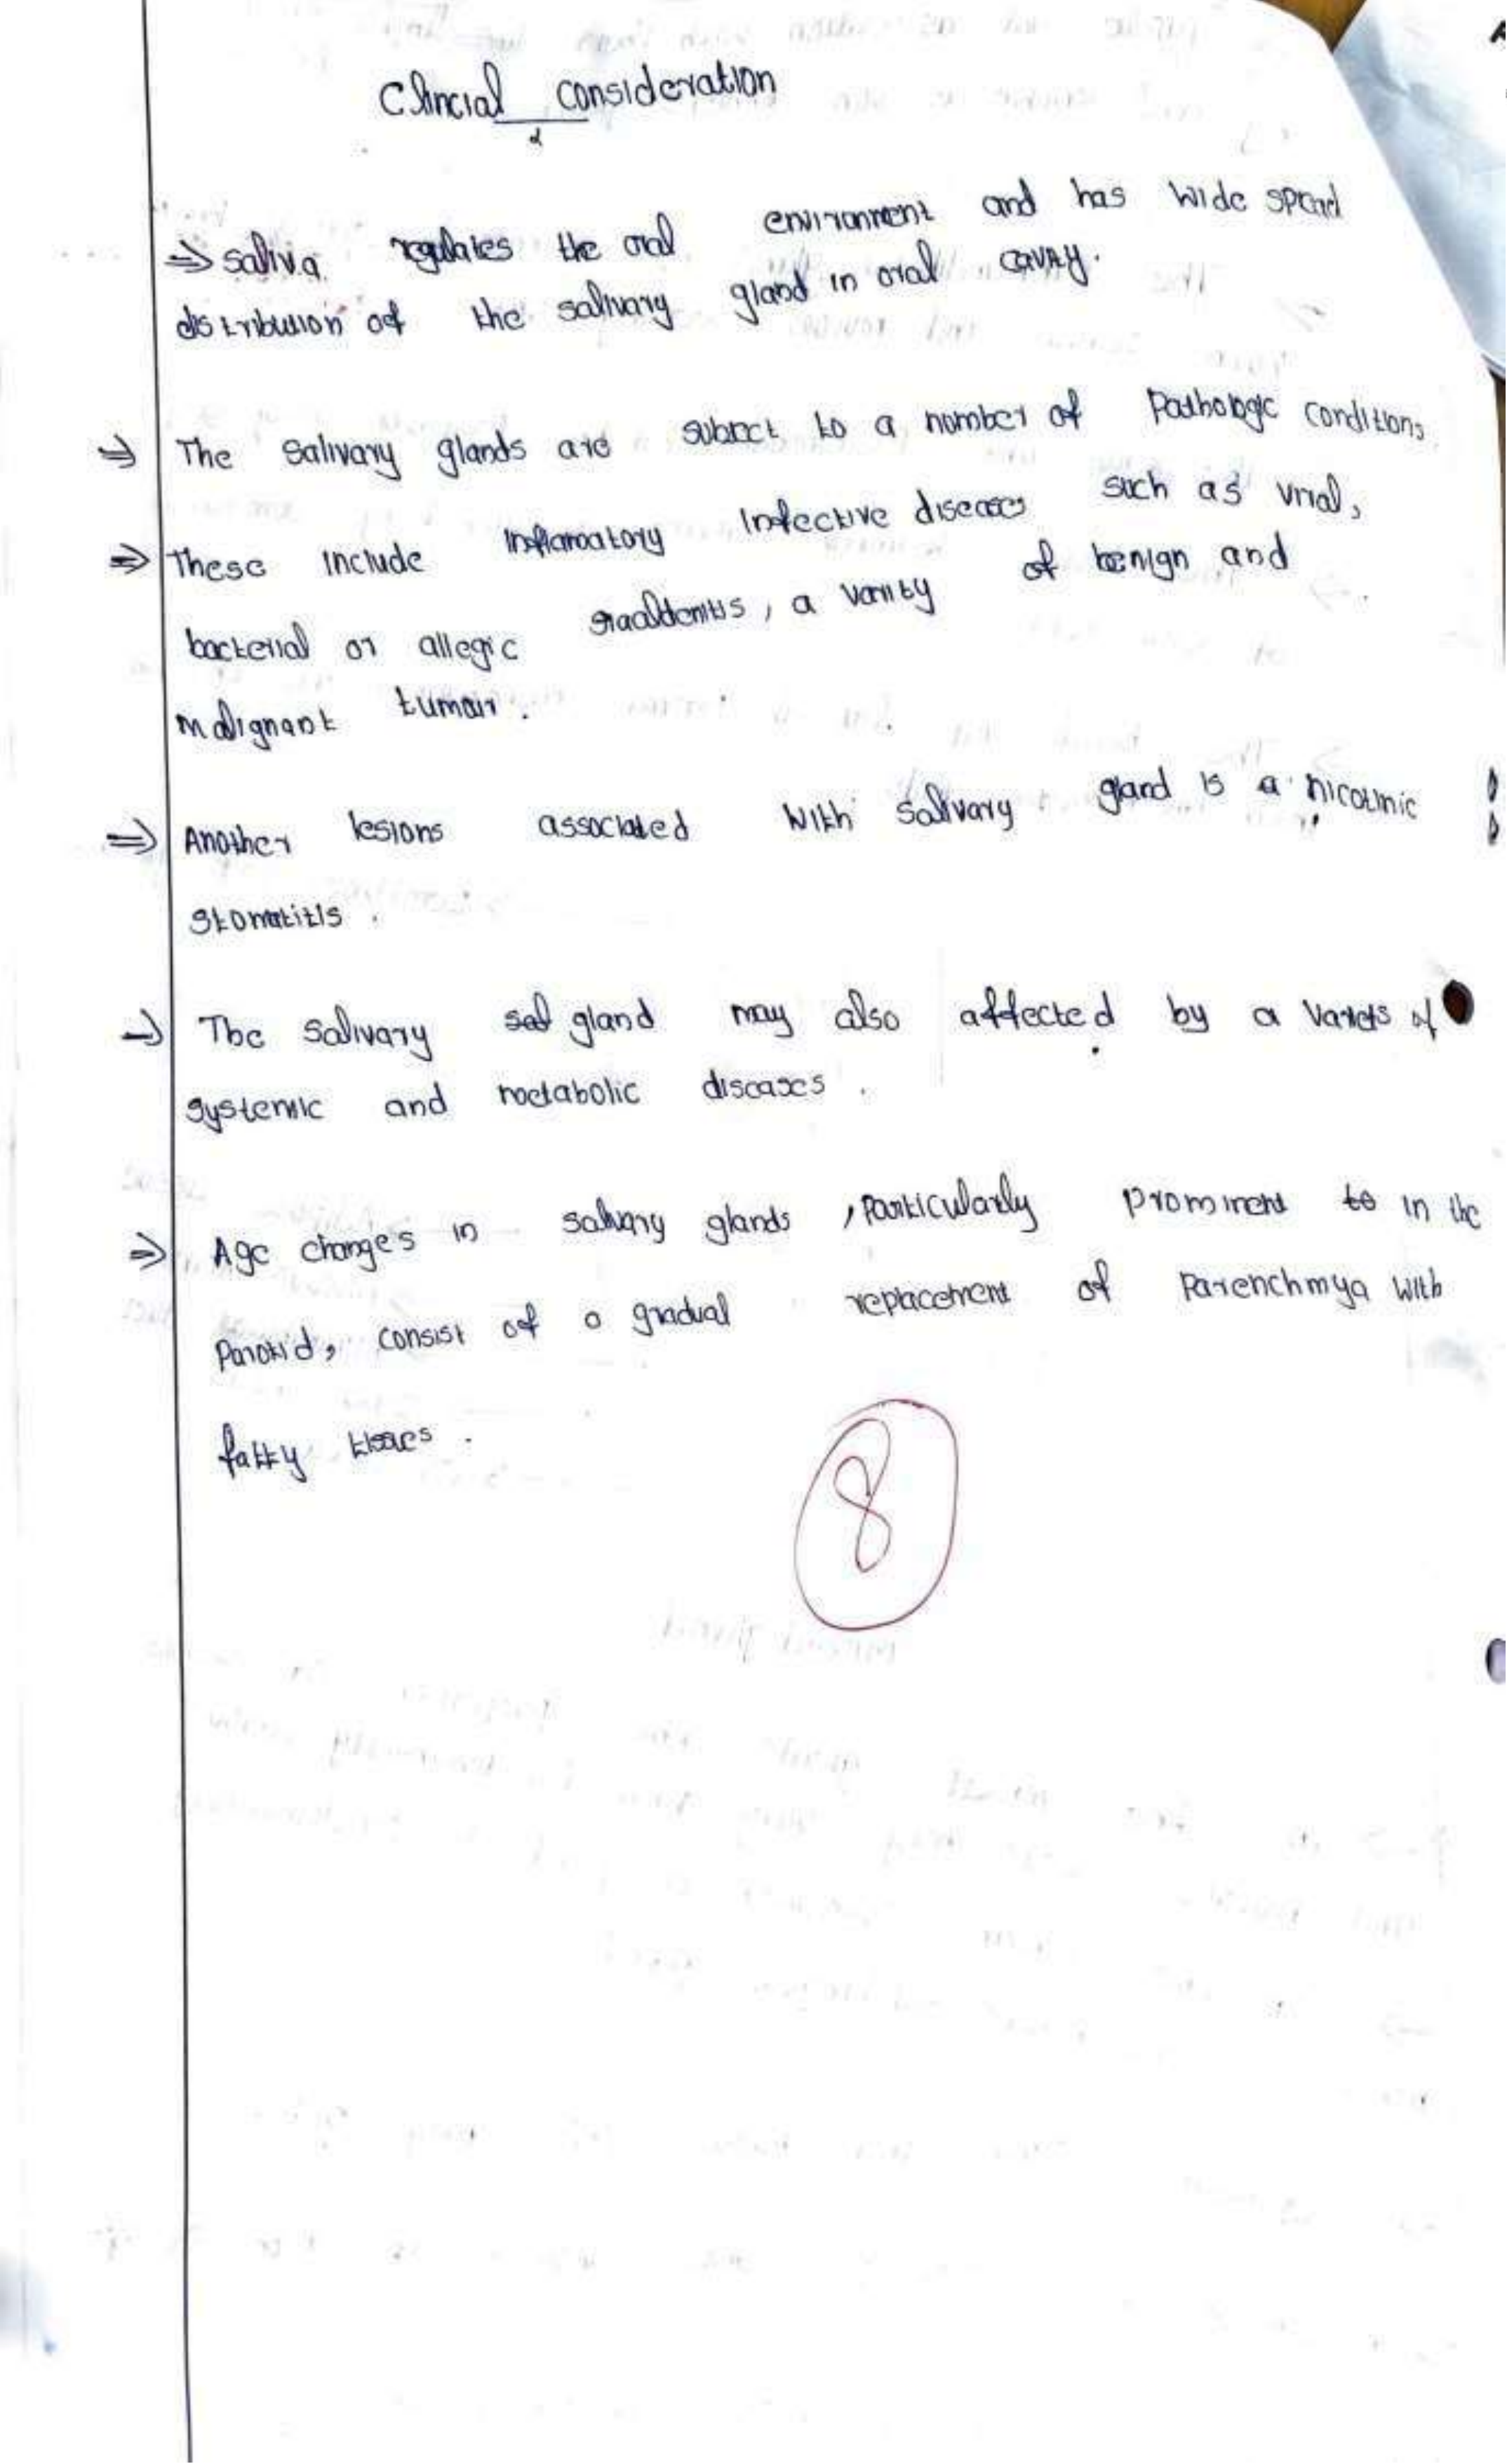 Clincial consideration
⇒ saliva regulates the oral environment and has wide spread
distribution of the salivary gland in oral cavity.
⇒ The salivary glands are subject to a number of Pathologic conditions
⇒ These include inflamatory infective diseases such as viral,
bacterial or allegic, a varity of benign and
malignant tumour.
⇒ Another lesions associated with salivary gland is a nicotinic
stomatitis.
→ The salivary gland may also affected by a of
systemic and metabolic diseases.
⇒ Age changes in salivary glands, particularly prominent to in the
Parotid, consist of a gradual replacement of Parenchmya with
fatty tissues.
8